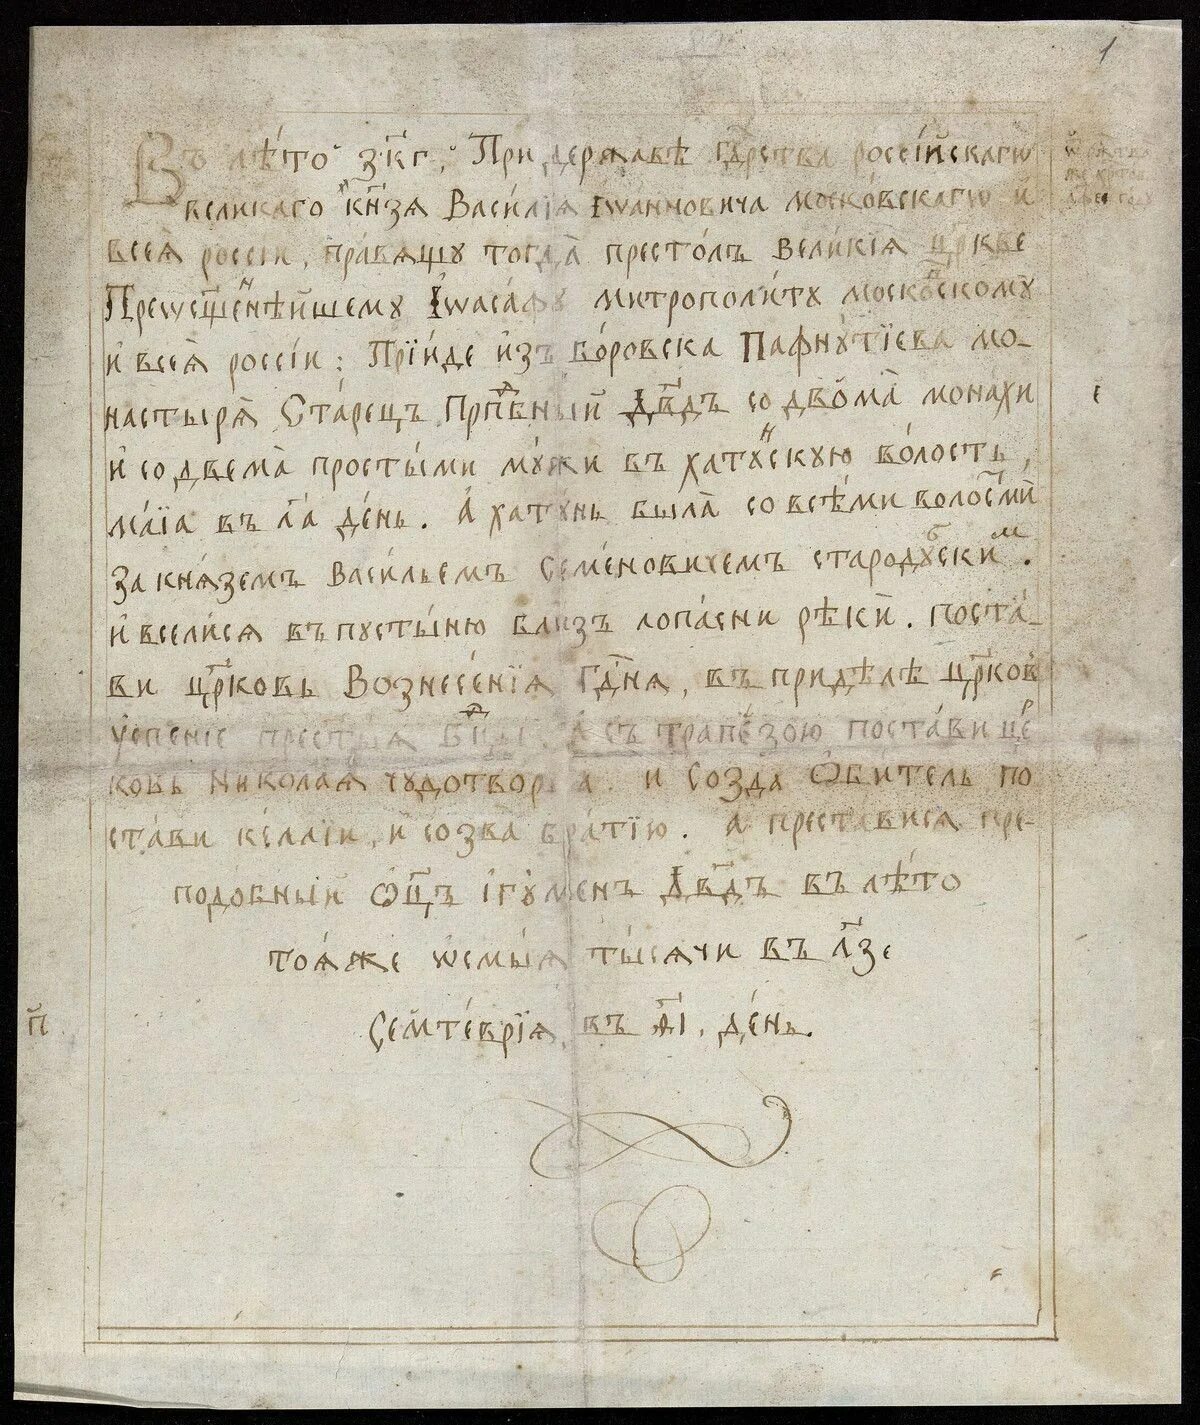 1
Въ лѣто зк҃г, При державѣ гдⷭ҇рства россі́йскагѡ
великаго кн҃зя Васи́лїя Іѡанновича моско́вскагѡ и҆
всея̀ россіи, пра́вящу тогда̀ престо́лъ вели́кїя цр҃кве
Преѡсщ҃е́ннѣйшему Іѡаса́фу митрополи́ту моско́вскому
и҆ всея̀ россі́и: Прїи́де и҆зъ бо́ровска Пафну́тїева мо-
настыря̀ Ста́рецъ Прпⷣбный Дв҃дъ со двома̀ монахи
и҆ со двема̀ просты́ми мꙋ́жи въ хатꙋ́нскую во́лость,
ма́їа въ л҃а де́нь. А҆ хатꙋ́нь была̀ со всѣ́ми волостⷨи
за кня́земъ Васи́льемъ Семе́новичемъ стародꙋ́бскимⷨ.
и҆ всели́ся въ пусты́ню бли́зъ лопа́сни рѣки̂. поста́-
ви цр҃ковь Вознесе́нїя Гдⷭ҇ня, въ придѣ́лѣ цр҃ковь
ᲂу҆спе́нїе прест҃ыя бцⷣы. А съ трапе́зою поста́ви це́р
ковь Николая̀ чудотворца. и созда Ѻ҆би́тель по
ста́ви ке́ллїи, и созва̀ бра́тїю. а преста́вися пре-
подо́бный Ѻ҆ц҃ъ і҆гꙋ́менъ Дв҃дъ въ лѣ́то
тоя́же ѡ҆смы́я ты́сячи въ л҃зе
Семте́врїя, въ ѳ҃і, де́нь.